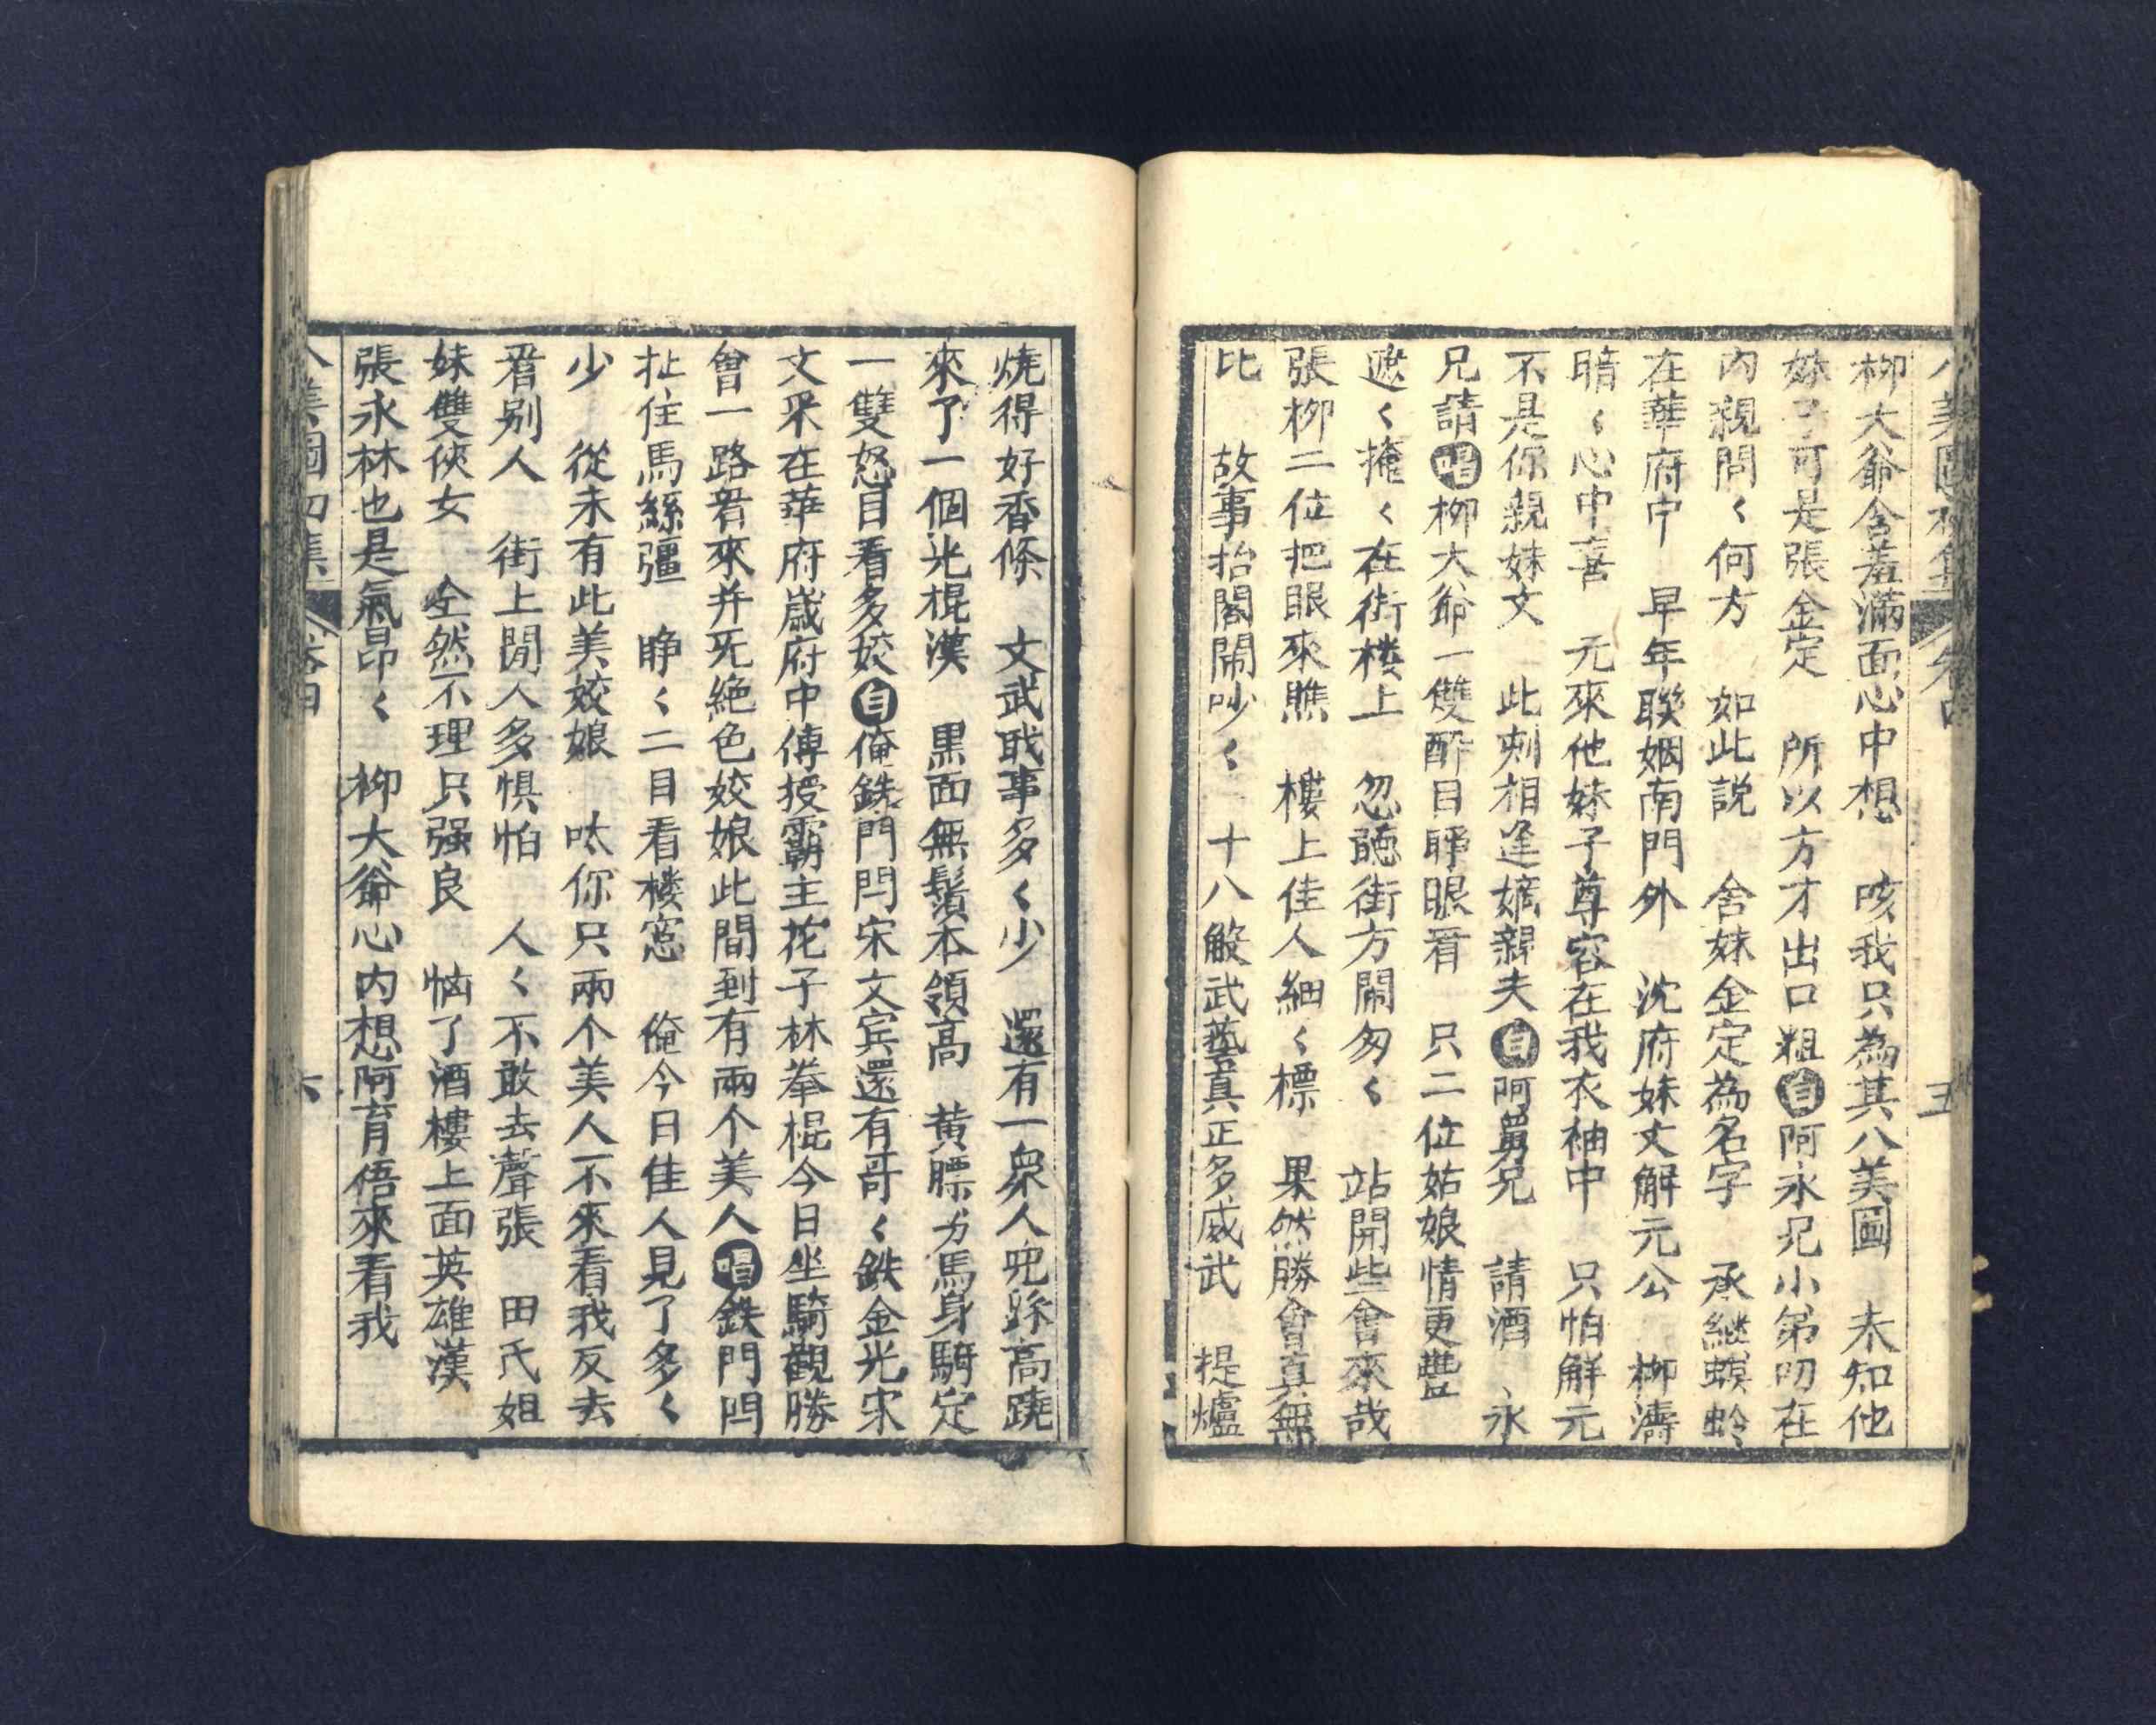 柳大爺含羞滿面心中想　咳我只為其八美圖　未知他
妹子可是張金定　所以方才出口粗白阿永兄小弟叨在
內親問く何方　如此説　舍妹金定為名字　承繼螟蛉
在華府中　早年聯姻南門外　沈府妹丈解元公　柳濤
暗く心中喜　元來他妹子尊容在我衣袖中　只怕解元
不是你親妹丈　此刻相逢嫡親夫白阿舅兄　請酒　永
兄請唱柳大爺一雙醉目睜眼看　只二位姑娘情更豐
遮く掩く在街楼上　忽聽街方鬧匆く　站開些會來哉
張柳二位把眼來瞧　樓上佳人細く標　果然勝會真無
比　故事抬閣鬧吵く　十八般武藝真正多威武　提爐
燒得好香條　文武戝事多く少　還有一衆人兜跺高蹺
來了一個光棍漢　黒面無鬚本領高　黄膘為馬身騎定
一雙怒目看多姣白俺鉄門閂宋文宾還有哥く鉄金光宋
文采在華府歲府中傳授霸主花子林拳棍今日坐騎觀勝
會一路看來并旡絶色姣娘此間到有兩个美人唱鉄門閂
扯住馬絲疆　睁く二目看楼窓　俺今日佳人見了多く
少　從未有此美姣娘　呔你只兩个美人不來看我反去
看别人　街上閒人多惧怕　人く不敢去聲張　田氏姐
妹雙俠女　全然不理只强良　恼了酒樓上面英雄漢
張永林也是氣昂く　柳大爺心内想阿育唔來看我
八美圖初集　卷四　六